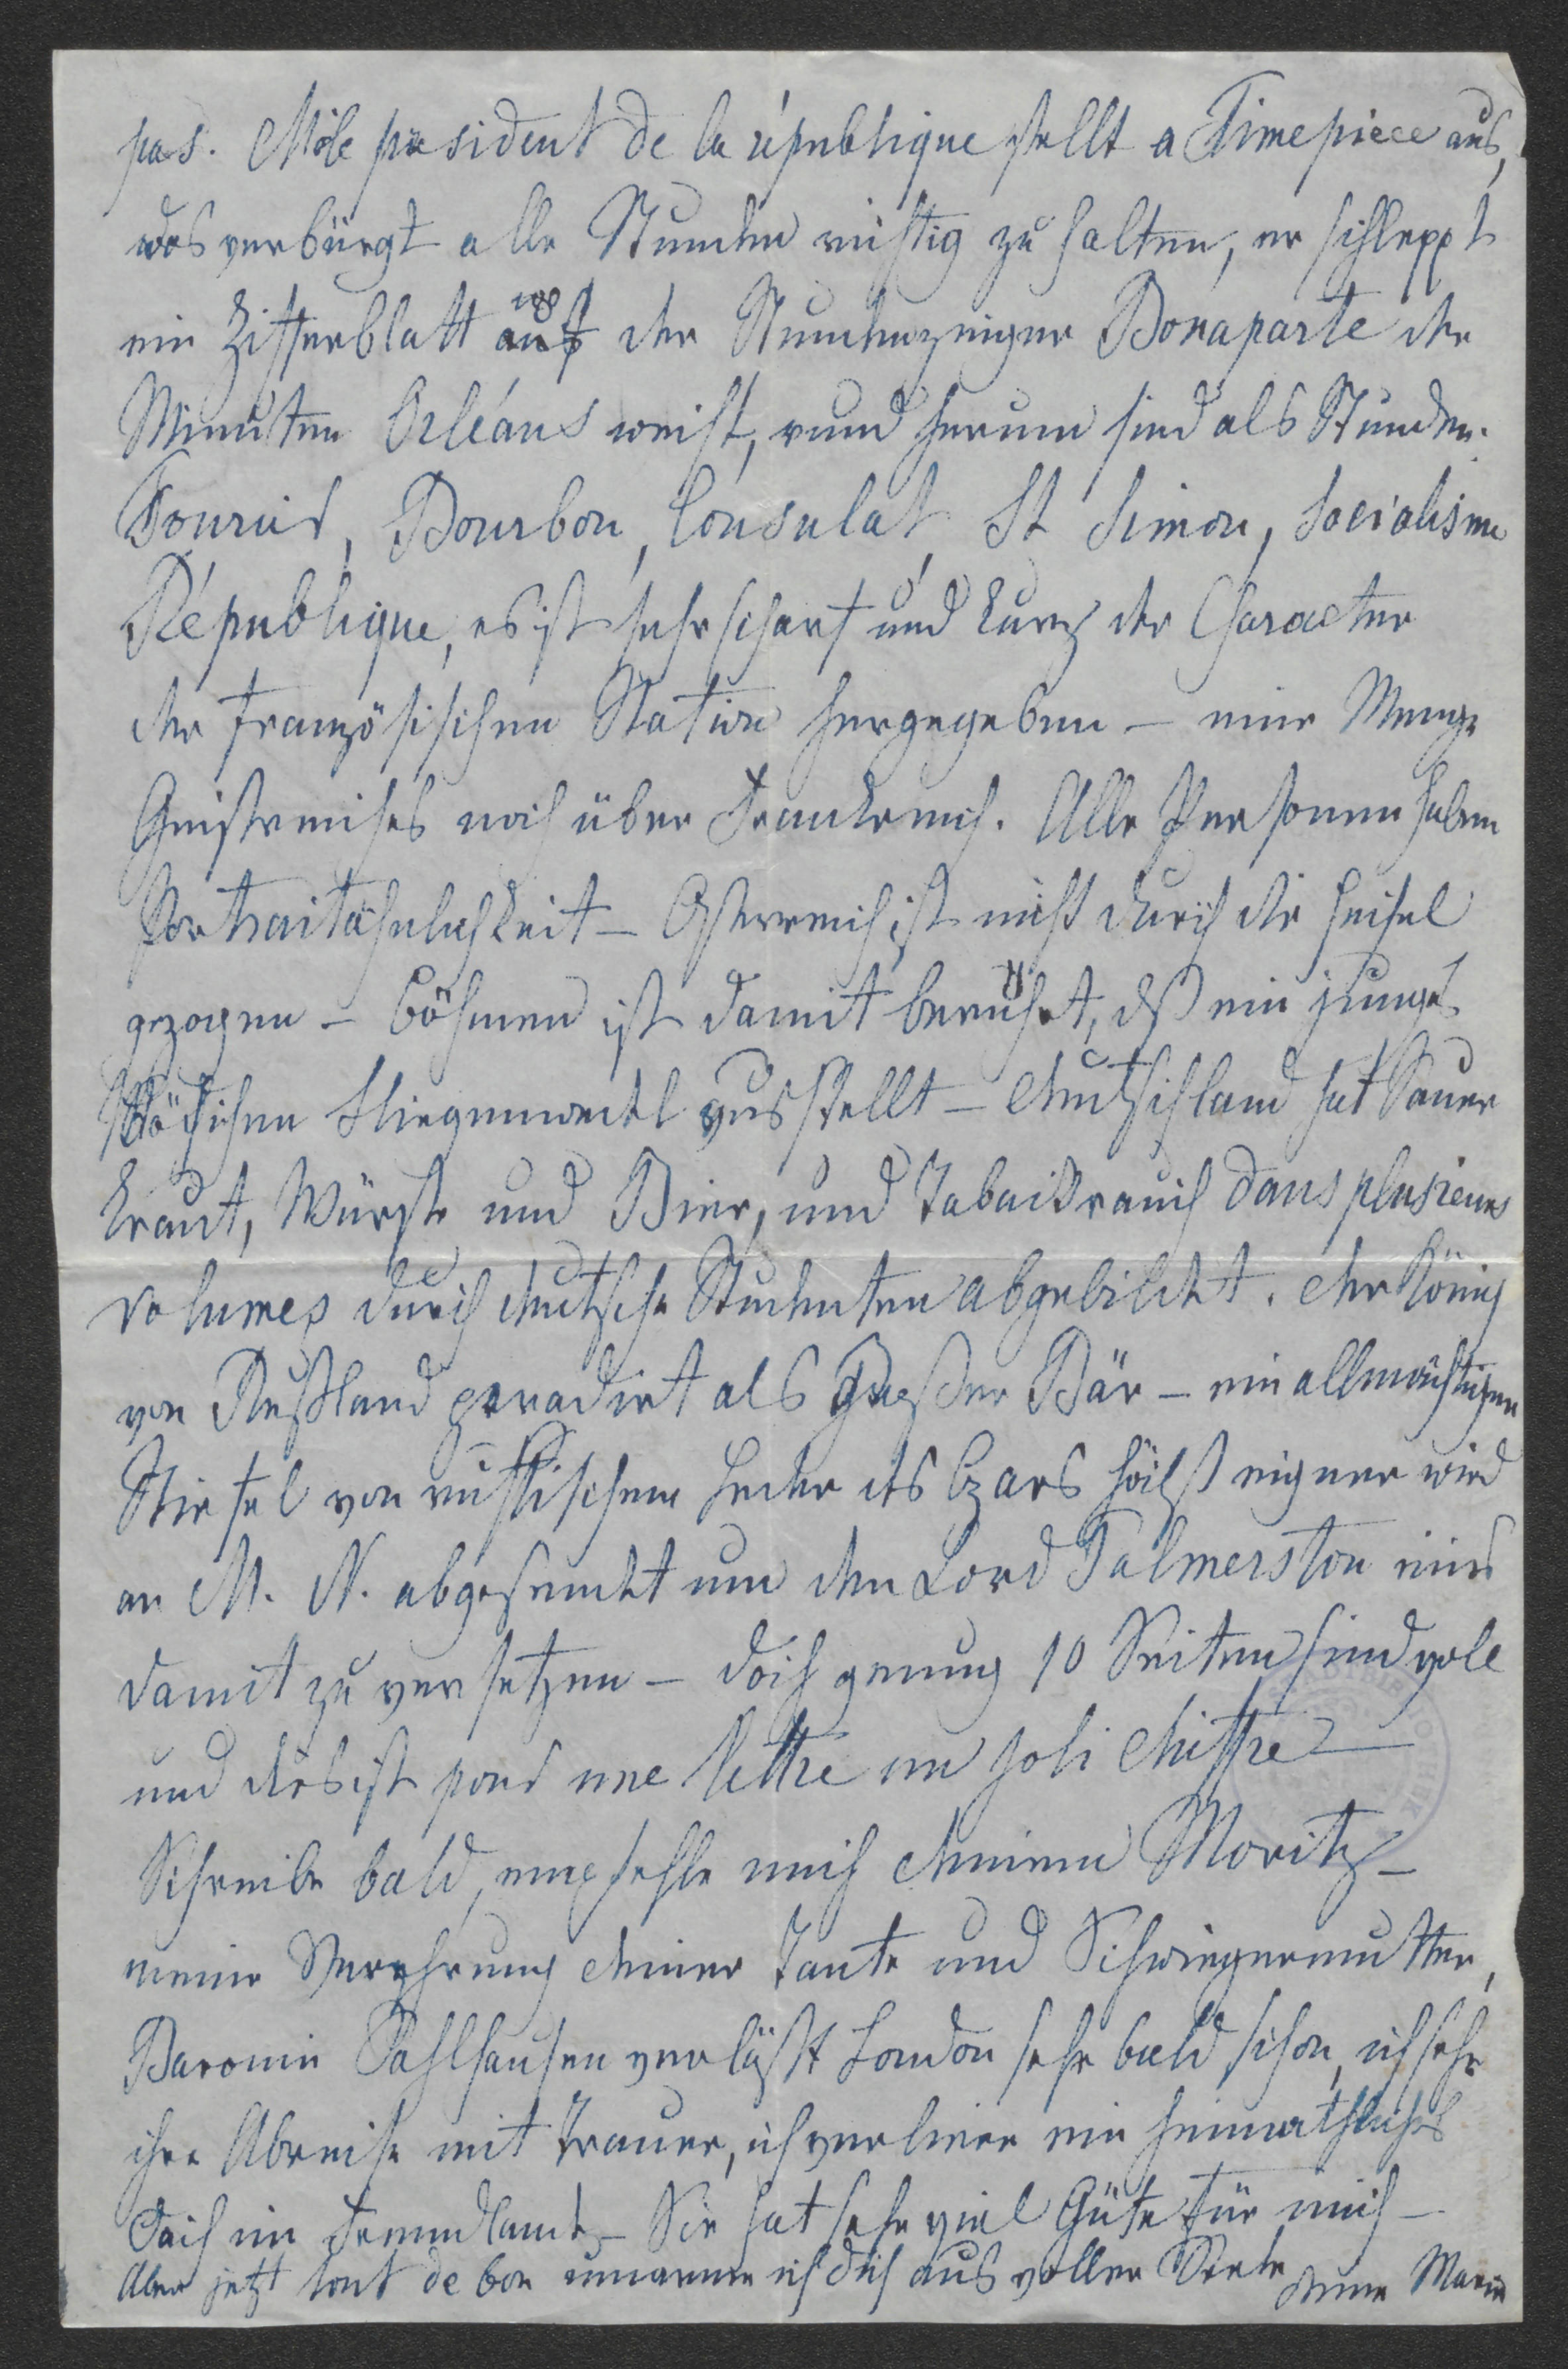 pas. Môle président de la république stellt a Timepiece aus,
was verbürgt alle Stunden richtig zu halten, er schleppt
ein Zifferblatt wo der Stundenzeiger Bonaparte der
Minuten Orléans weist, rund herum sind als Stunden
Bourbon, Consulat, St Simon, Socialisme
République, es ist sehr scharf und kurz der Character
der französischen Nation hergegeben – eine Menge
Geistreiches noch über Frankreich. Alle Personen haben
Portraitähnlichkeit – Östereich ist nicht durch die Hechel
gezogen – Böhmen ist damit berührt, dß ein junges
Mädchen ausstellt – Deutschland hat Sauer
kraut, Würste und Bier, und Tabackrauch dans plusieurs
volumes durch deutsche Studenten abgebildet. der König
von Rußland paradirt als Großer Bär – ein allmächtiger
Stiefel von russischem Leder des Czars höchst eigner wird
an M. N. abgesendet um den Lord Palmerston eins
damit zu versetzen – doch genug 10 Seiten sind voll
und dies ist pour une lettre un joli chiffre –
Schreibe bald, empfehle mich deinem Moritz –
meine Verehrung deiner Tante und Schwiegermutter,
Baronin Pahlhausen verläßt London sehr bald schon, ich sehe
ihre Abreise mit Trauer, ich verliere ein heimathliches
Dach im Fremdlande – Sie hat sehr viel Güte für mich –
Aber jetzt tout de bon umarme ich dich aus voller Seele deine Marie